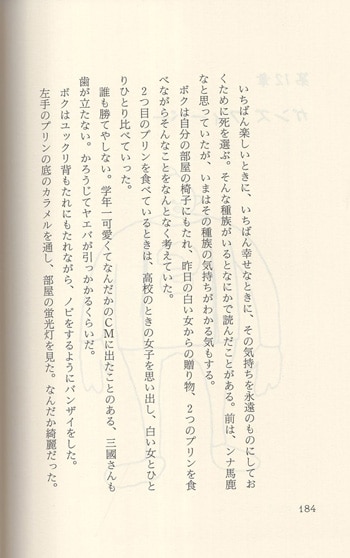 いちばん楽しいときに、いちばん幸せなときに、その気持ちを永遠のものにしてお
くために死を選ぶ。そんな種族がいるとなにかで読んだことがある。前は、ンナ馬鹿
なと思っていたが、いまはその種族の気持ちがわかる気もする。
ボクは自分の部屋の椅子にもたれ、昨日の白い女からの贈り物、2つのプリンを食
べながらそんなことをなんとなく考えていた。
2つ目のプリンを食べているときは、高校のときの女子を思い出し、白い女とひと
りひとり比べていった。
誰も勝てやしない。学年一可愛くてなんだかのCMに出たことのある、三國さんも
歯が立たない。かろうじてヤエバが引っかかるくらいだ。
ボクはユックリ背もたれにもたれながら、ノビをするようにバンザイをした。
左手のプリンの底のカラメルを通し、部屋の蛍光灯を見た。なんだか綺麗だった。
184